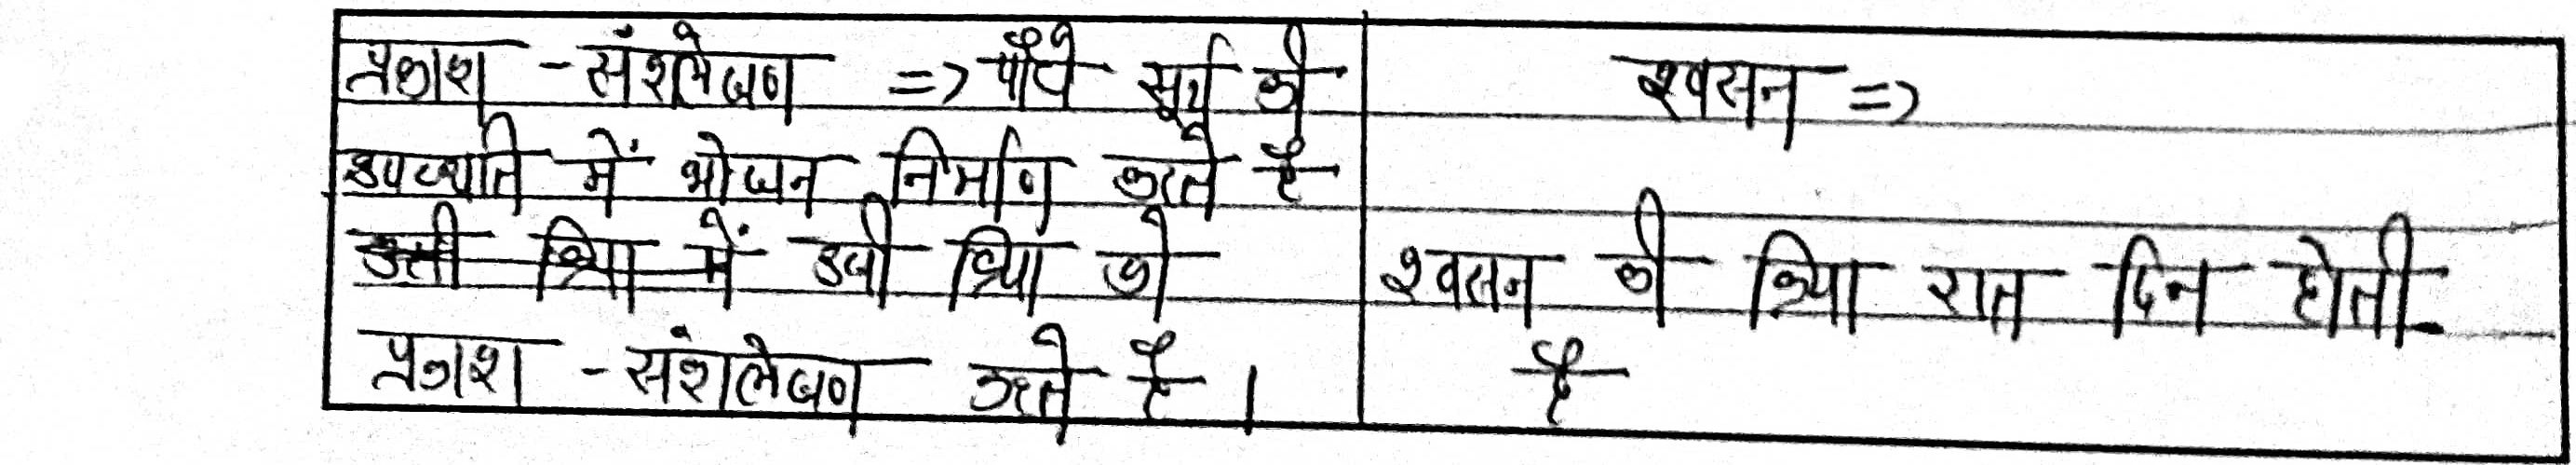 प्रकाश - संश्लेषण => पौधे सूर्य की
उपस्थाति में भोजन निर्माण करते है
उसी क्रिया में उसी क्रिया को
प्रकाश - संशलेषण करते है ।
श्वसन =>
श्वसन की क्रिया रात दिन होती
है